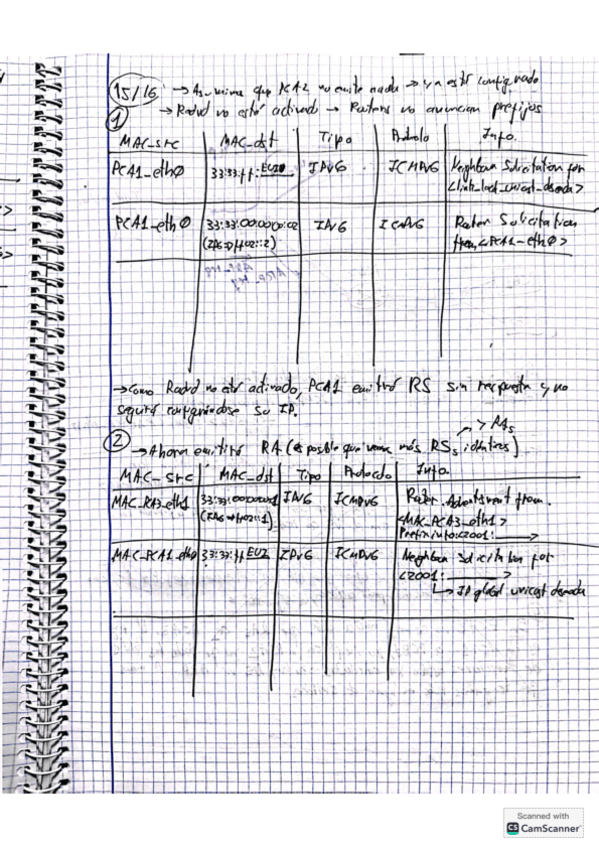 15/16 → Asumimos que PCA2 no emite nada → ya está configurado
→ Radvd no está activado → Routers no anuncian prefijos
1
MAC_src MAC_dst Tipo Protolo Info.
PCA1_eth0 33:33:ff: IPv6 ICMPv6 Neighbour Solicitation for
<link_local_unicast_deseada>
PCA1_eth0 33:33:00:00:00:02 IPv6 ICMPv6 Router Solicitation
(IPv6→ff02::2) from <PCA1_eth0>
→ Como Radvd no está activado, PCA1 emitirá RS sin respuesta y no
seguirá configurándose su IP.
→ RAs
2 → Ahora emitirá RA (es posible que veamos más RSs idénticos)
MAC_src MAC_dst Tipo Protocolo Info.
MAC_RA3_eth1 33:33:00:00:00:01 IPv6 ICMPv6 Router Advertisement from
(IPv6→ff02::1) <MAC_RCA3_eth1>
Prefix info:<2001: >
MAC_PCA1_eth0 33:33:ff IPv6 ICMPv6 Neighbour Solicitation for
<2001: >
→ IP global unicast deseada
Scanned with
CS CamScanner